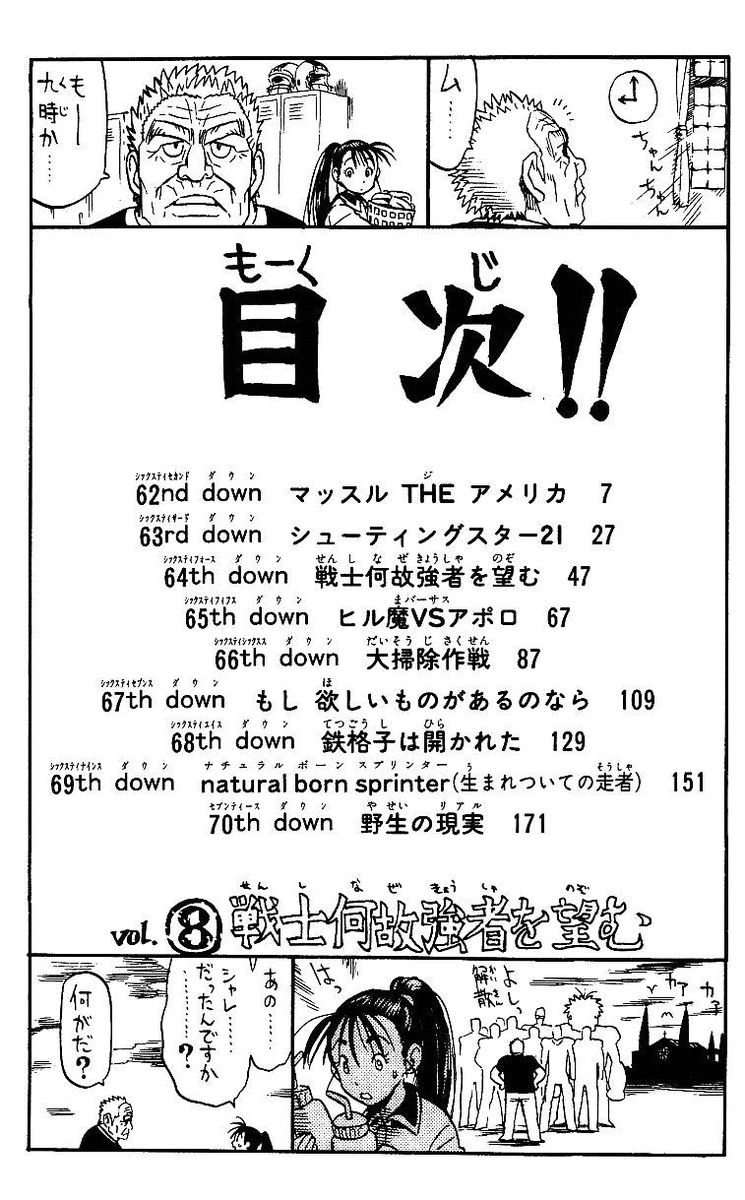 ム……
ちゃんちゃん
もー
九時か……
目次!!
62nd down マッスル THE アメリカ 7
63rd down シューティングスター21 27
64th down 戦士何故強者を望む 47
65th down ヒル魔VSアポロ 67
66th down 大掃除作戦 87
67th down もし 欲しいものがあるのなら 109
68th down 鉄格子は開かれた 129
69th down natural born sprinter(生まれついての走者) 151
70th down 野生の現実 171
vol. 8 戦士何故強者を望む
カアカア
よしっ
解散
はっ
あの……
シャレ……
だったんですか
……?
何がだ?